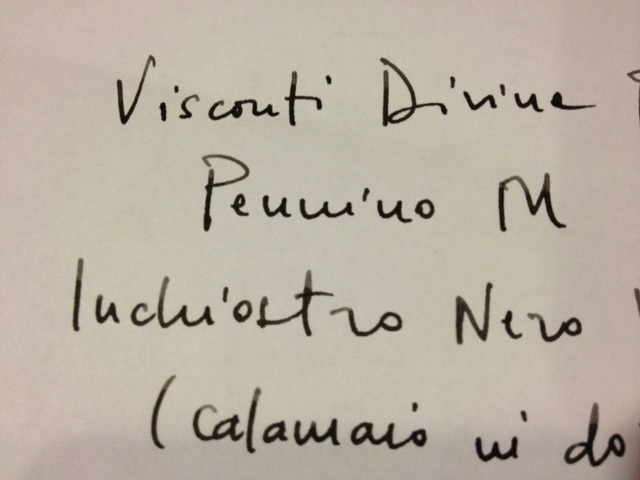 Visconti Divine
Pennino M
Inchiostro Nero
(calamaio in do